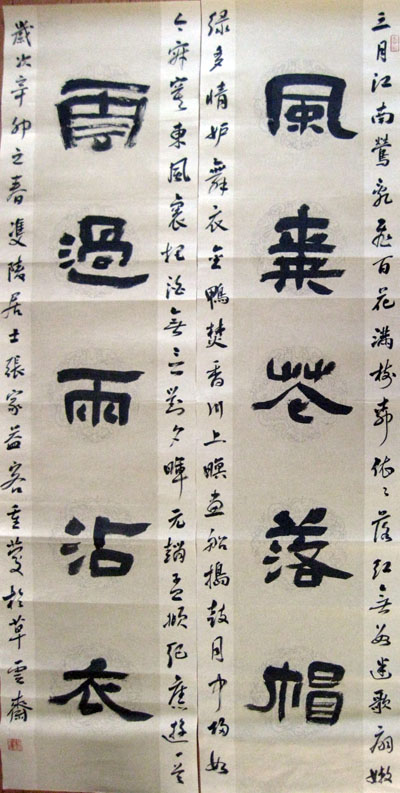 三月江南鶯亂飛百花滿樹柳依依落紅無數迷歌扇嫩
風來花落帽
綠多情妒舞衣金鴨焚香川上暝畫船撾鼓月中歸如
今寂寞東風裏把酒無言對夕暉 元趙孟頫紀舊遊一首
雲過雨沾衣
歲次辛卯之春雙陵居士張家益客重慶於草雲齋